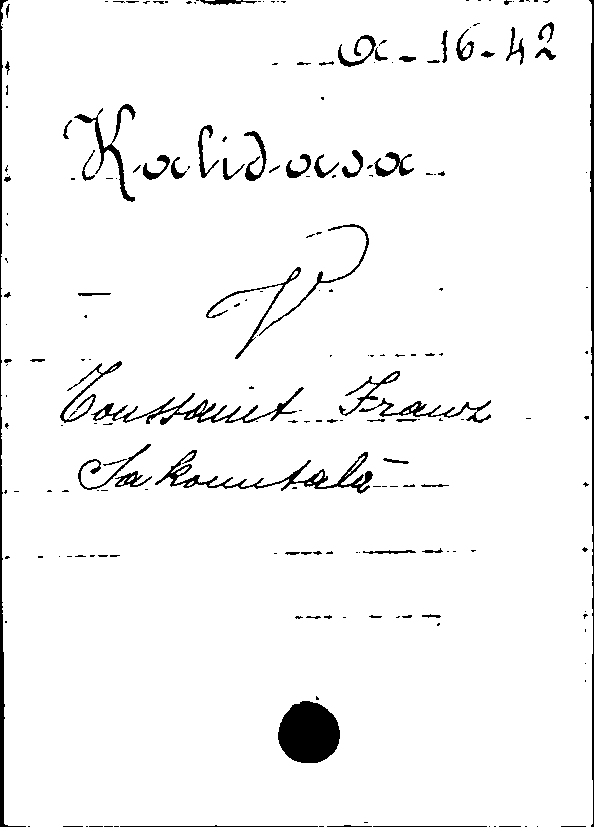 a-16-42
Kalidasa
V
Toussaint Franz
Sakountalā